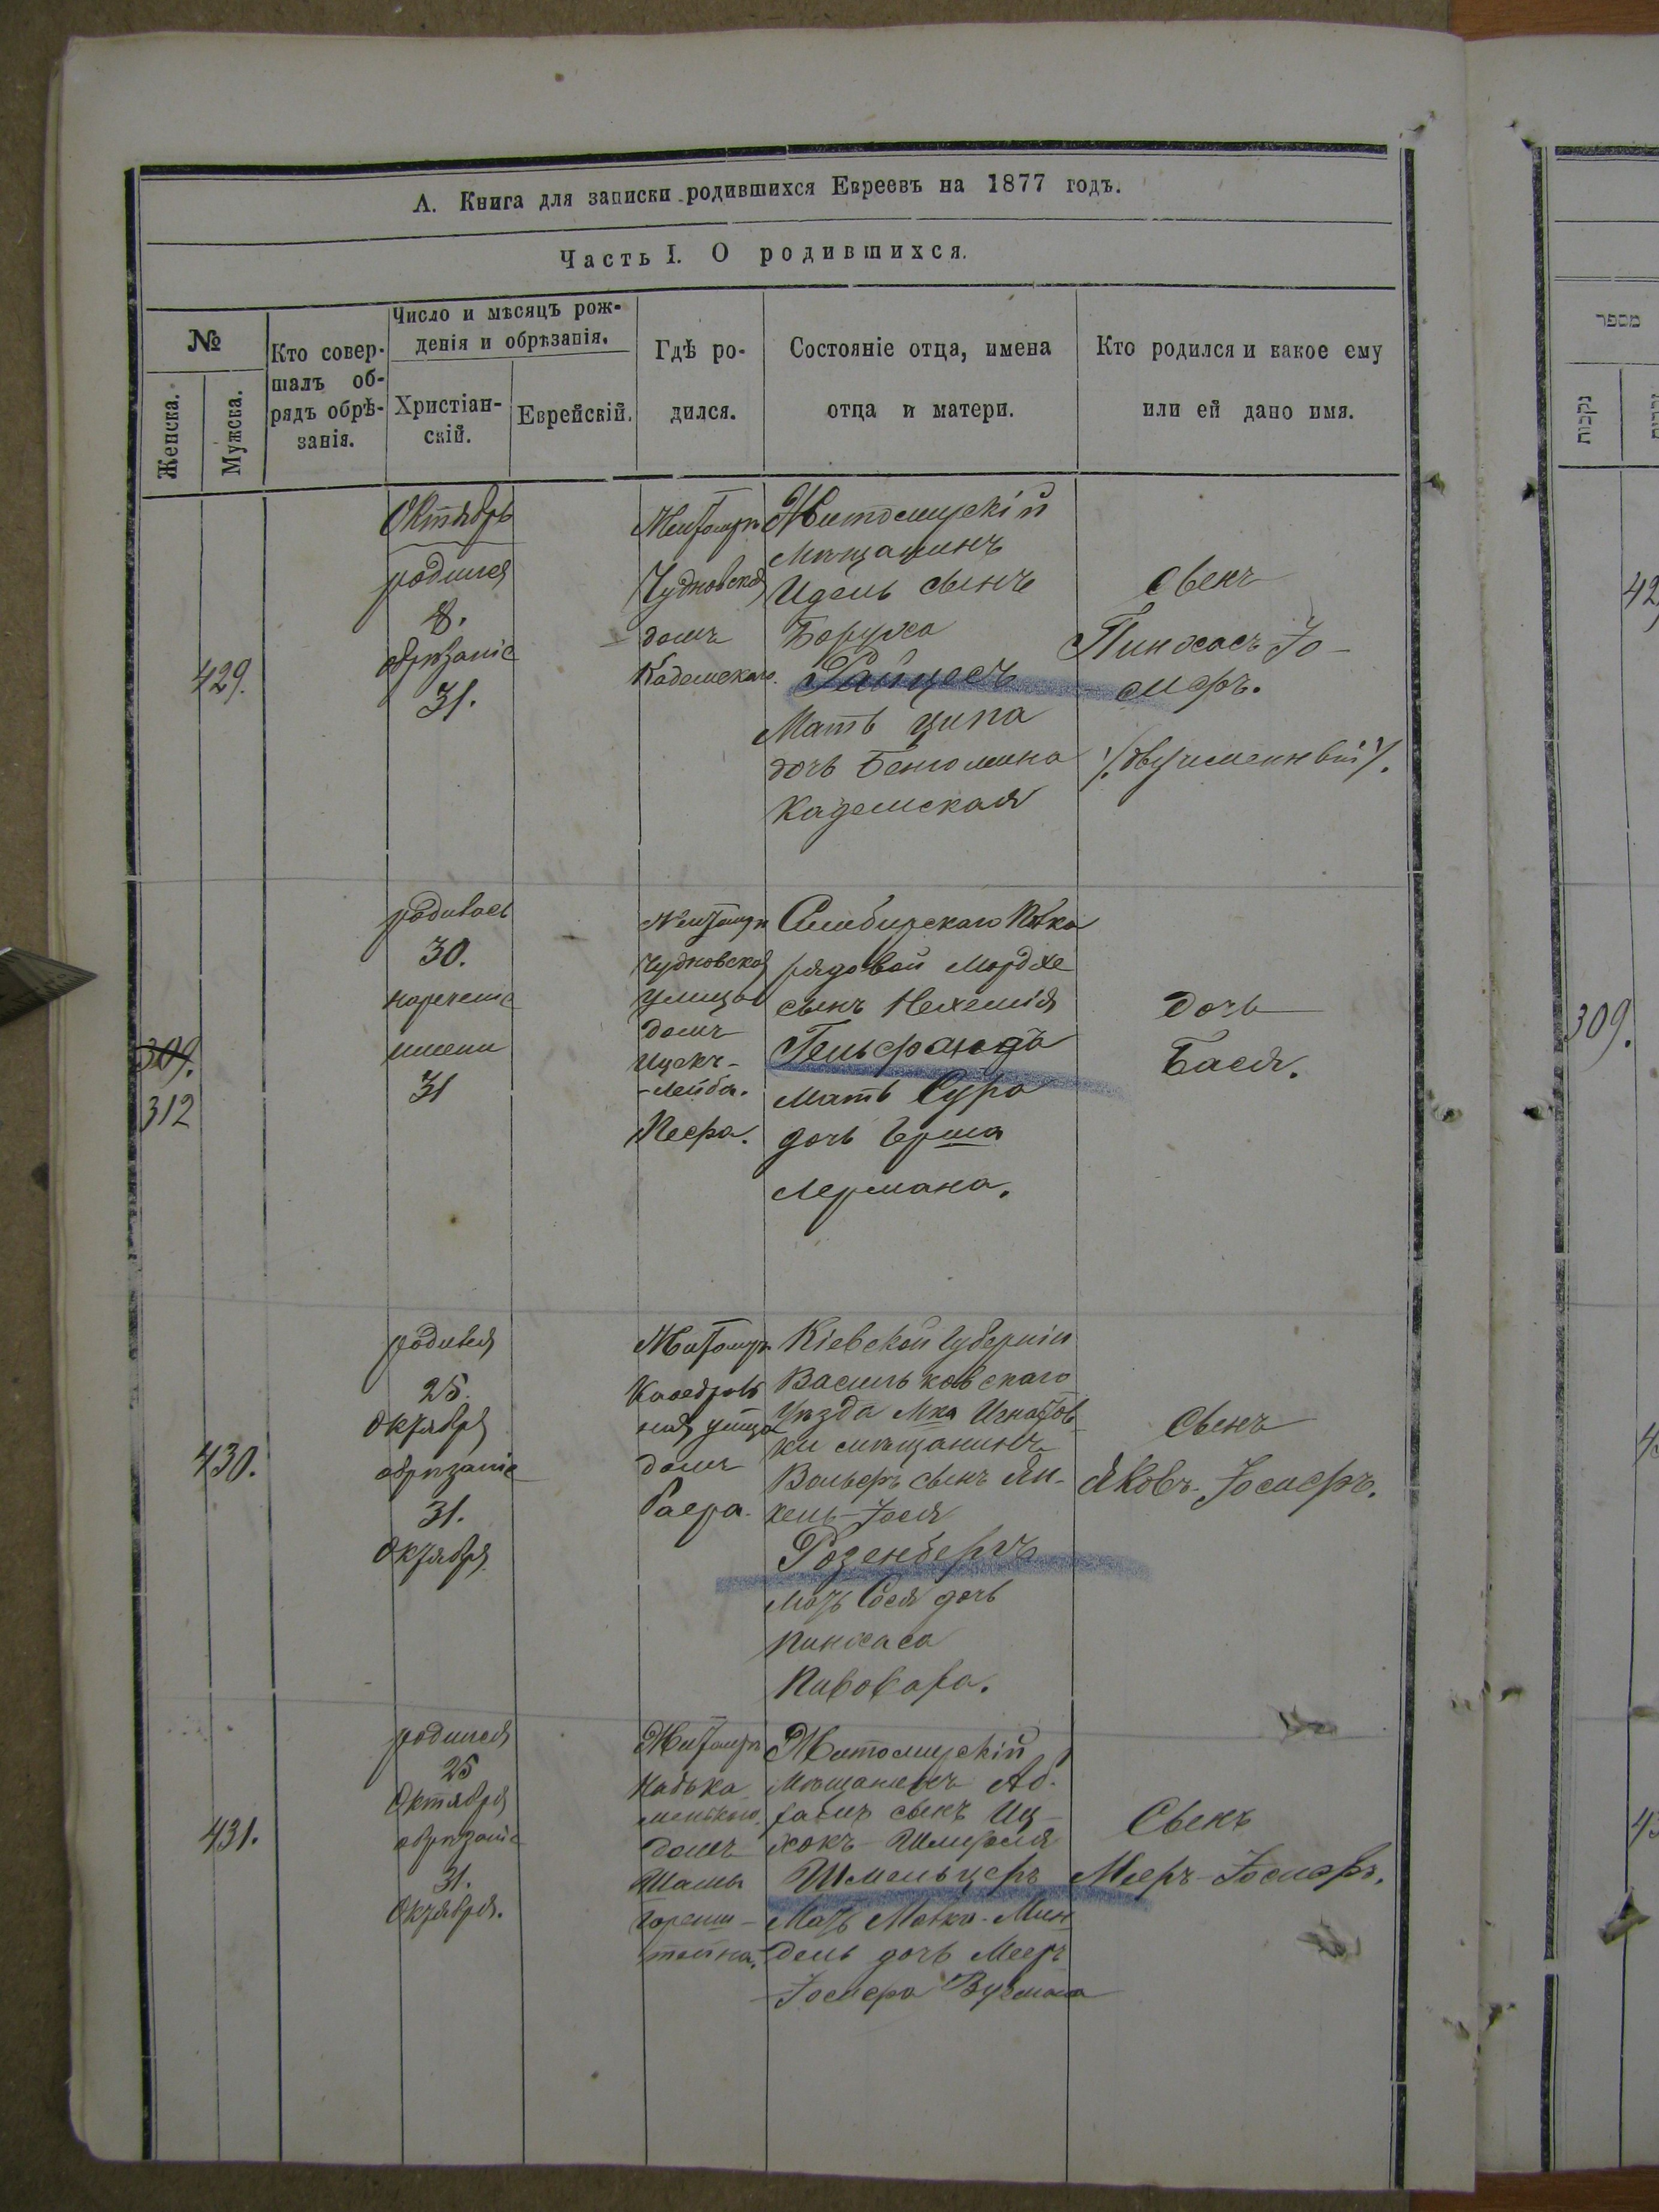 А. Книга для записки родившихся Евреевъ на 1877 годъ.
Часть I. О родившихся.
№
Женска.
Мужска.
Кто совер-
шалъ об-
рядъ обрѣ-
занія.
Число и мѣсяцъ рож-
денія и обрѣзанія.
Христіан-
скій.
Еврейскій.
Гдѣ ро-
дился.
Состояніе отца, имена
отца и матери.
Кто родился и какое ему
или ей дано имя.
429.
Октябрь
родился
8.
обрѣзаніе
31.
Житомръ
Чудновская
домъ
Житомирскій
мѣщанинъ
Идель сынъ
Боруха
Мать Ципа
дочь Беніомина
Кадемская
сынъ
Пинхасъ Іо-
сифъ.
/.двуименный/.
309.
312
родилась
30.
нареченіе
имени
31
Житомръ
Чудновская
улица
домъ
Ицекъ-
-Лейба.
Симбирскаго Полка
рядовой Мордхе
сынъ Нехемія
Гельфандъ
мать Сура
дочь Герша
Лермана.
дочь
Бася.
430.
родился
25.
Октября
обрѣзаніе
31.
Октября
Житомръ
Кафедраль
ная улица
домъ
Баера.
Кіевской Губерніи
Васильковскаго
уѣзда Мка Игнатов-
ки мѣщанинъ
Вольфъ сынъ Ян-
кель-Іося
Розенбергъ
мать Сося дочь
Пинхаса
Пивовара.
Сынъ
Яковъ-Іосифъ.
431.
родился
25
Октября
обрѣзаніе
31.
Октября.
Житомръ
домъ
Шамы
Горенш-
тейна.
Житомирскій
Мѣщанинъ Аб-
рамъ сынъ Иц-
хокъ-Шмуеля
Шмельцеръ
Мать Малка-Мин
дель дочь Меер
Іосифа
Сынъ
Мееръ-Іосифъ.
מספר
נקבות
309.